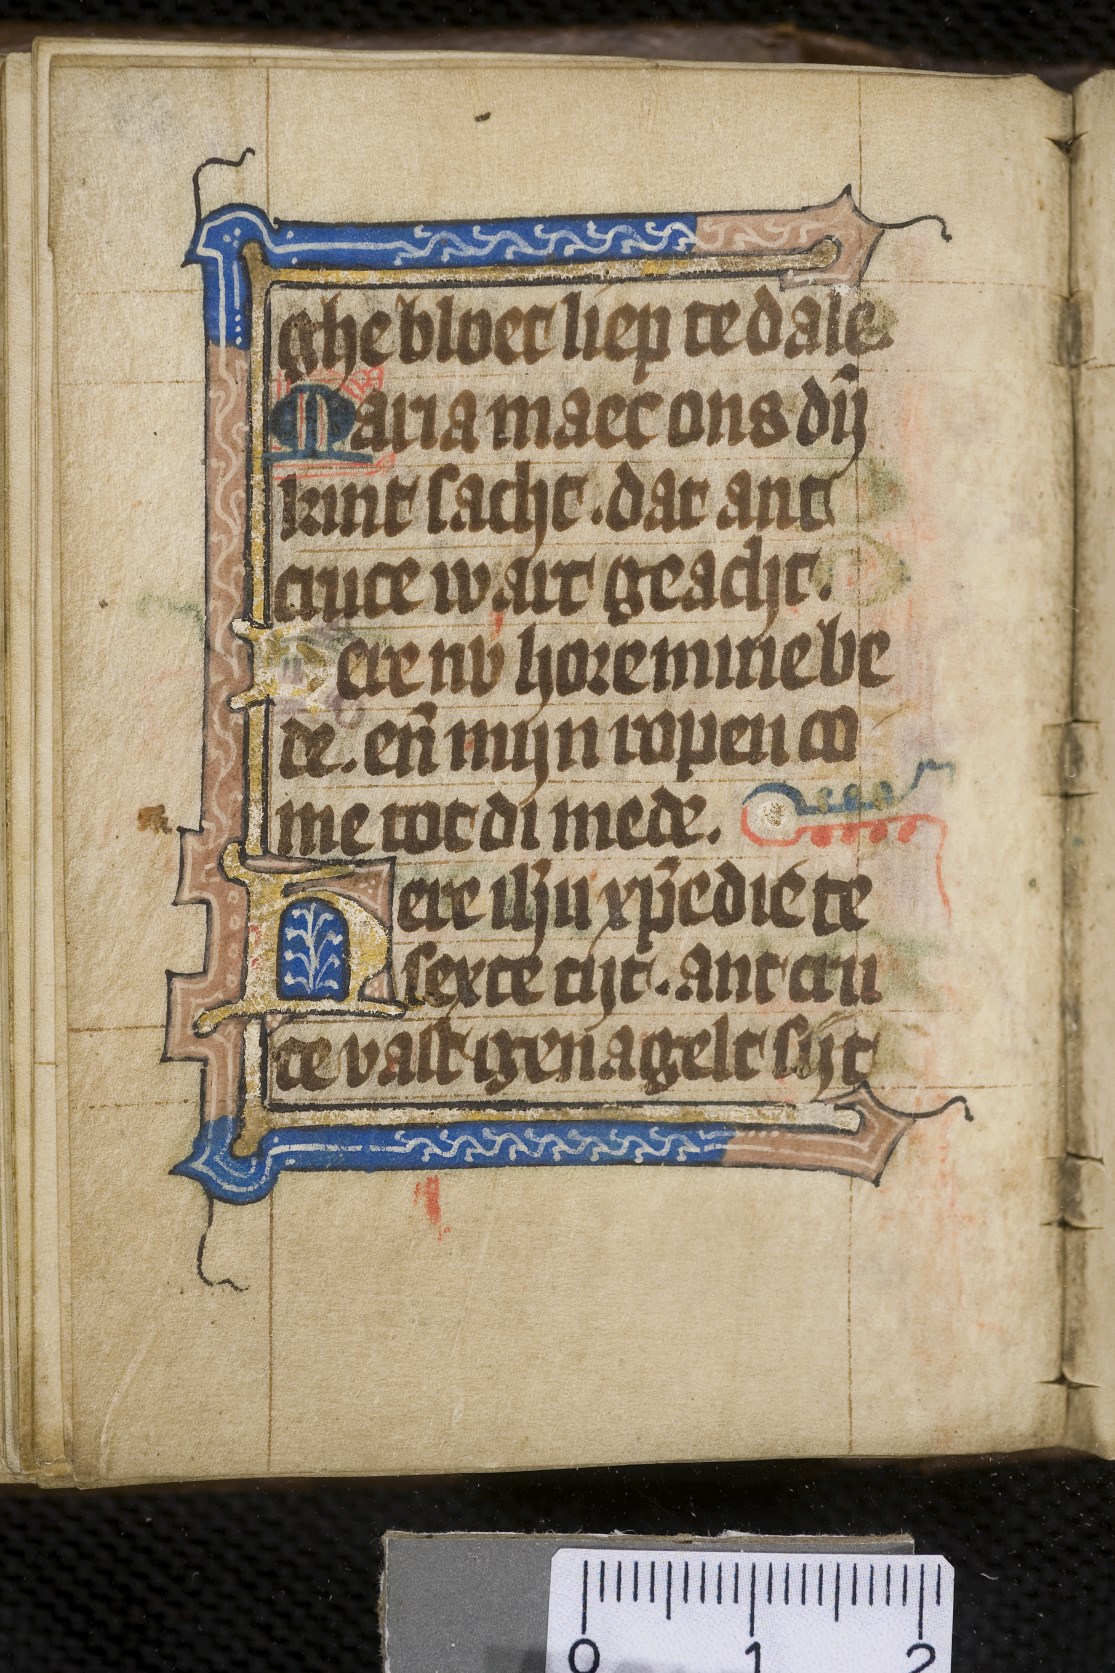 ghe bloet liep te dale.
Maria maect ons dȳ
kint sacht. dat ant
cruce wart geacht.
Here nv hore mine be
de. en̄ mijn ropen co
me tot di mede.
Here ih̄u xp̄e die te
sexte tijt. ant cru
ce vast genagelt sijt
0 1 2